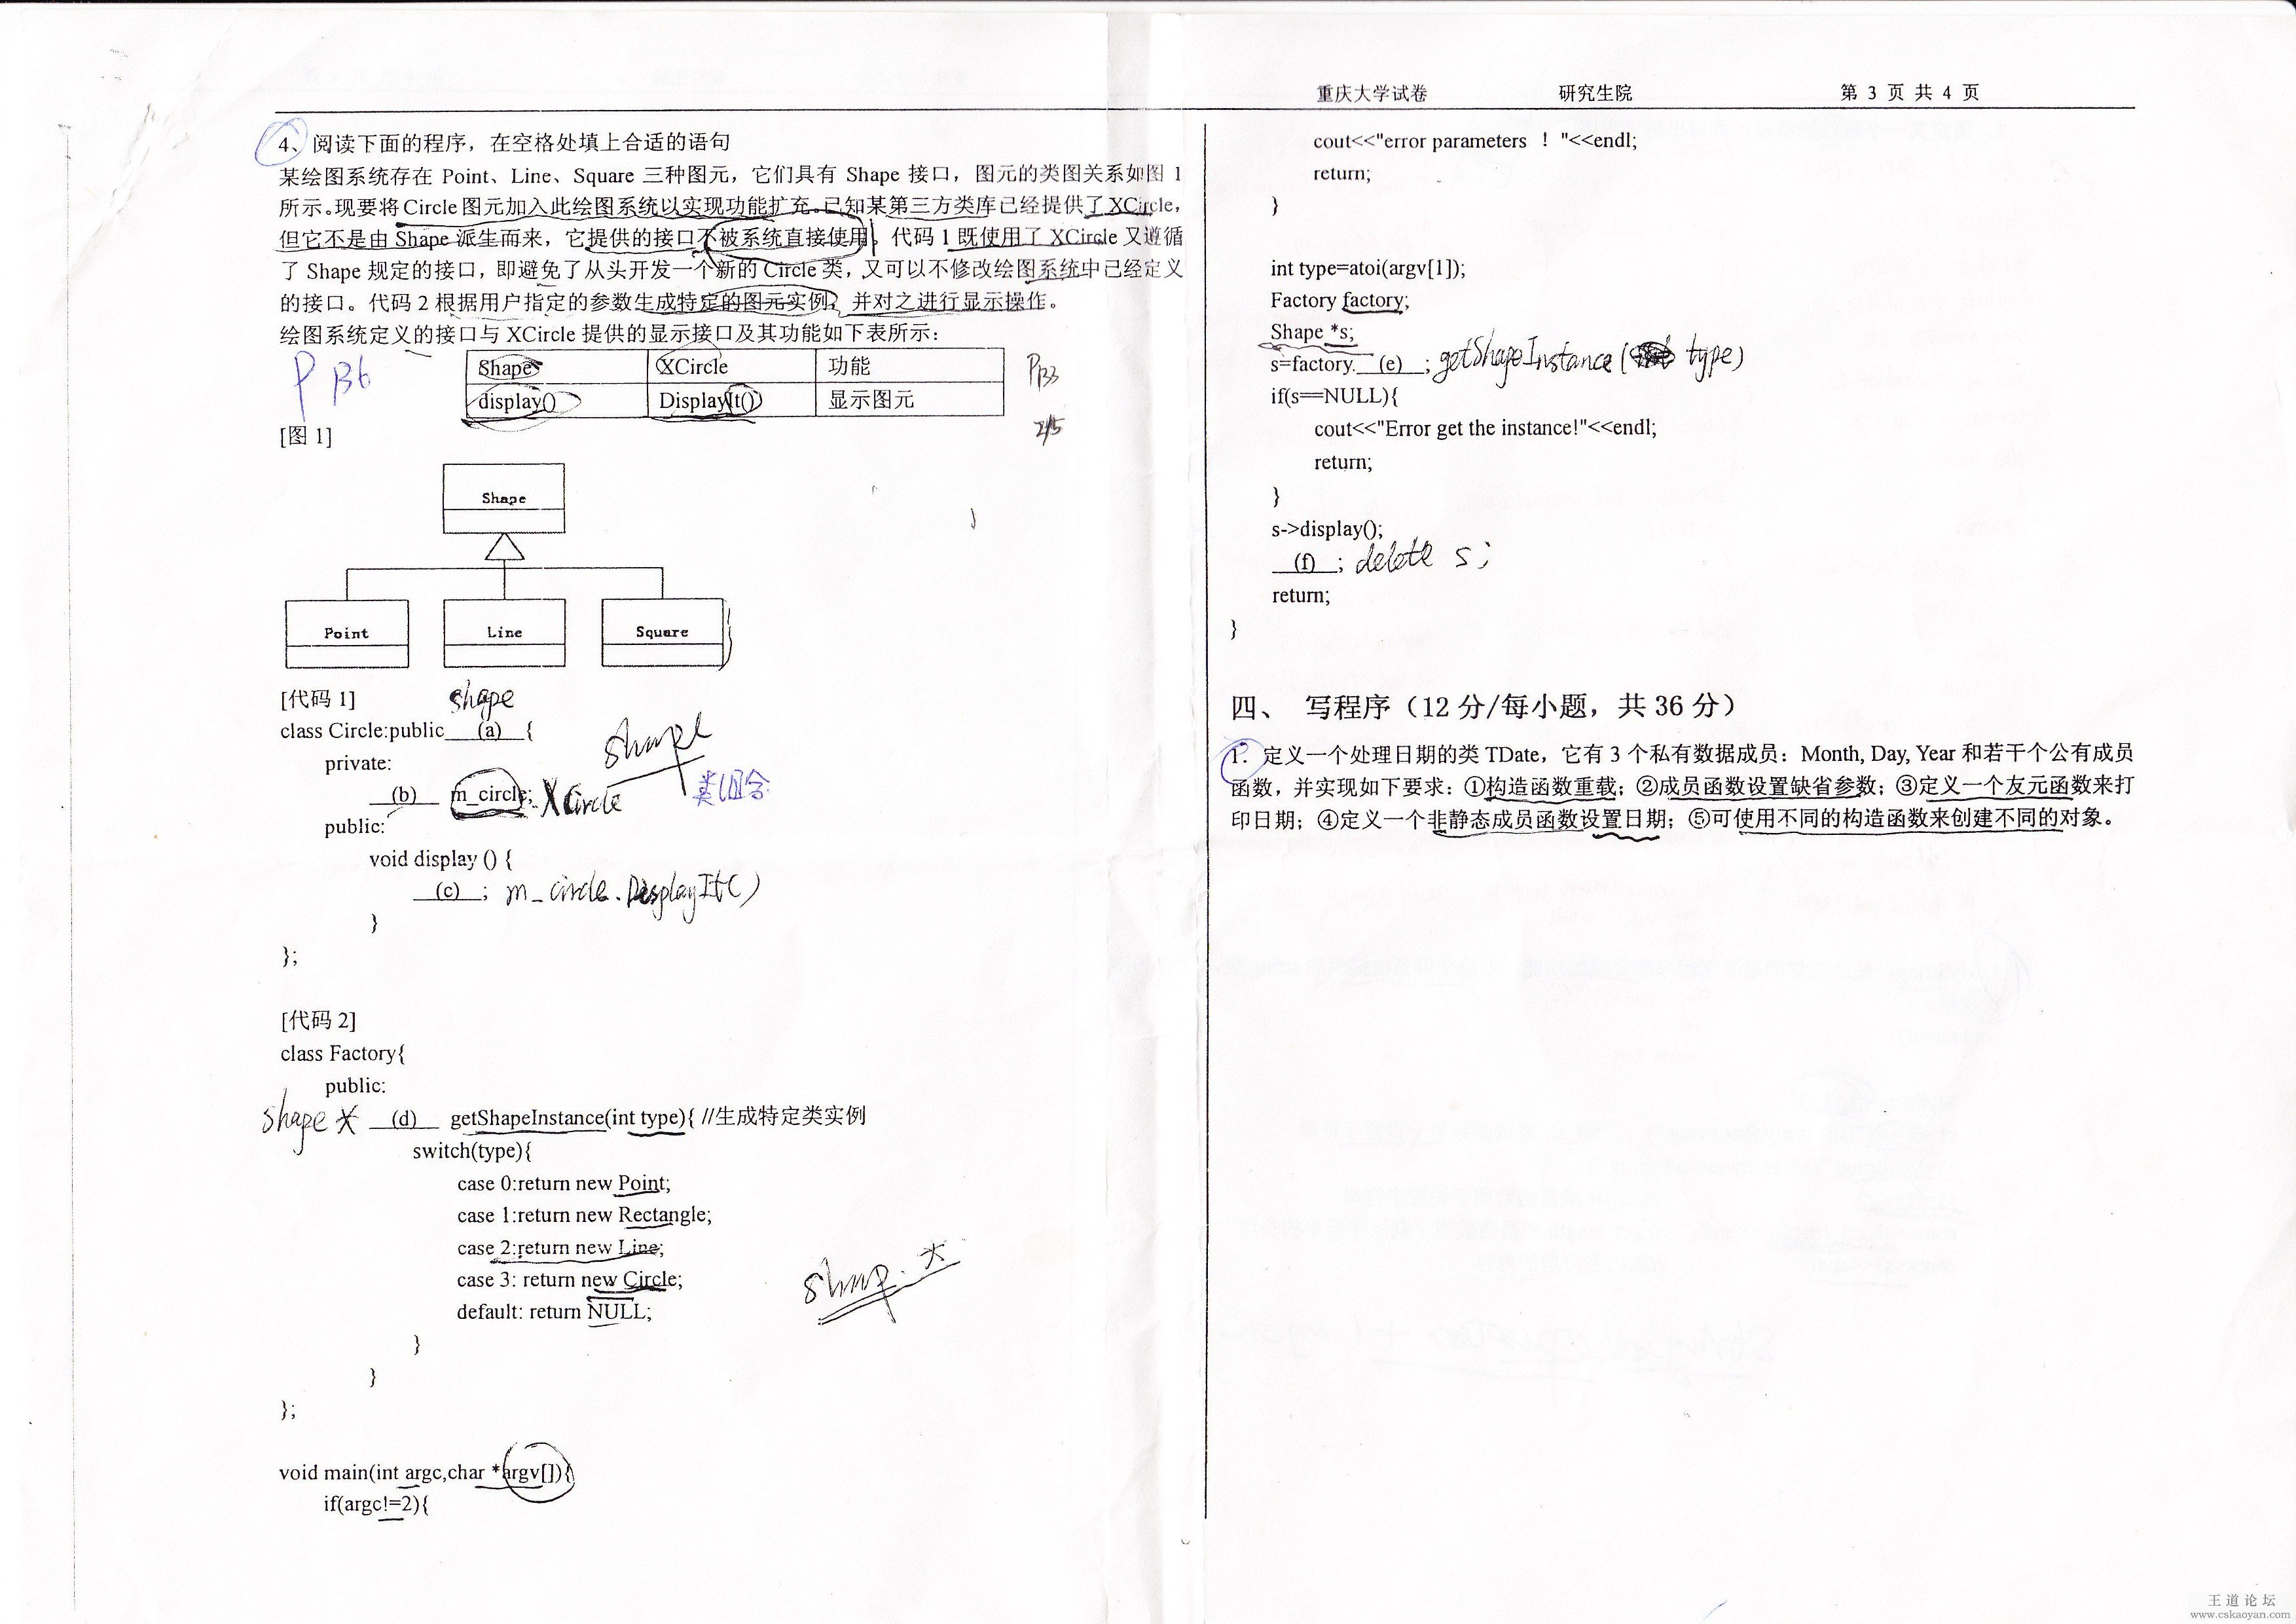 重庆大学试卷 研究生院 第 3 页 共 4 页
4、阅读下面的程序，在空格处填上合适的语句
某绘图系统存在 Point、Line、Square 三种图元，它们具有 Shape 接口，图元的类图关系如图 1
所示。现要将 Circle 图元加入此绘图系统以实现功能扩充。已知某第三方类库已经提供了 XCircle，
但它不是由 Shape 派生而来，它提供的接口不被系统直接使用。代码 1 既使用了 XCircle 又遵循
了 Shape 规定的接口，即避免了从头开发一个新的 Circle 类，又可以不修改绘图系统中已经定义
的接口。代码 2 根据用户指定的参数生成特定的图元实例，并对之进行显示操作。
绘图系统定义的接口与 XCircle 提供的显示接口及其功能如下表所示：
Shape XCircle 功能
display() DisplayIt() 显示图元
P 136
P133
215
[图 1]
Shape
Point Line Square
[代码 1] shape
class Circle:public (a) { shape
private:
(b) m_circle; XCircle 类组合
public:
void display () {
(c) ; m_circle.DisplayIt()
}
};
[代码 2]
class Factory{
public:
shape * (d) getShapeInstance(int type){ //生成特定类实例
switch(type){
case 0:return new Point;
case 1:return new Rectangle;
case 2:return new Line;
case 3: return new Circle;
default: return NULL;
shape *
}
}
};
void main(int argc,char *argv[]){
if(argc!=2){
cout<<"error parameters ！ "<<endl;
return;
}
int type=atoi(argv[1]);
Factory factory;
Shape *s;
s=factory. (e) ; getShapeInstance( type)
if(s==NULL){
cout<<"Error get the instance!"<<endl;
return;
}
s->display();
(f) ; delete s;
return;
}
四、 写程序（12 分/每小题，共 36 分）
1. 定义一个处理日期的类 TDate，它有 3 个私有数据成员：Month, Day, Year 和若干个公有成员
函数，并实现如下要求：①构造函数重载；②成员函数设置缺省参数；③定义一个友元函数来打
印日期；④定义一个非静态成员函数设置日期；⑤可使用不同的构造函数来创建不同的对象。
王道论坛
www.cskaoyan.com